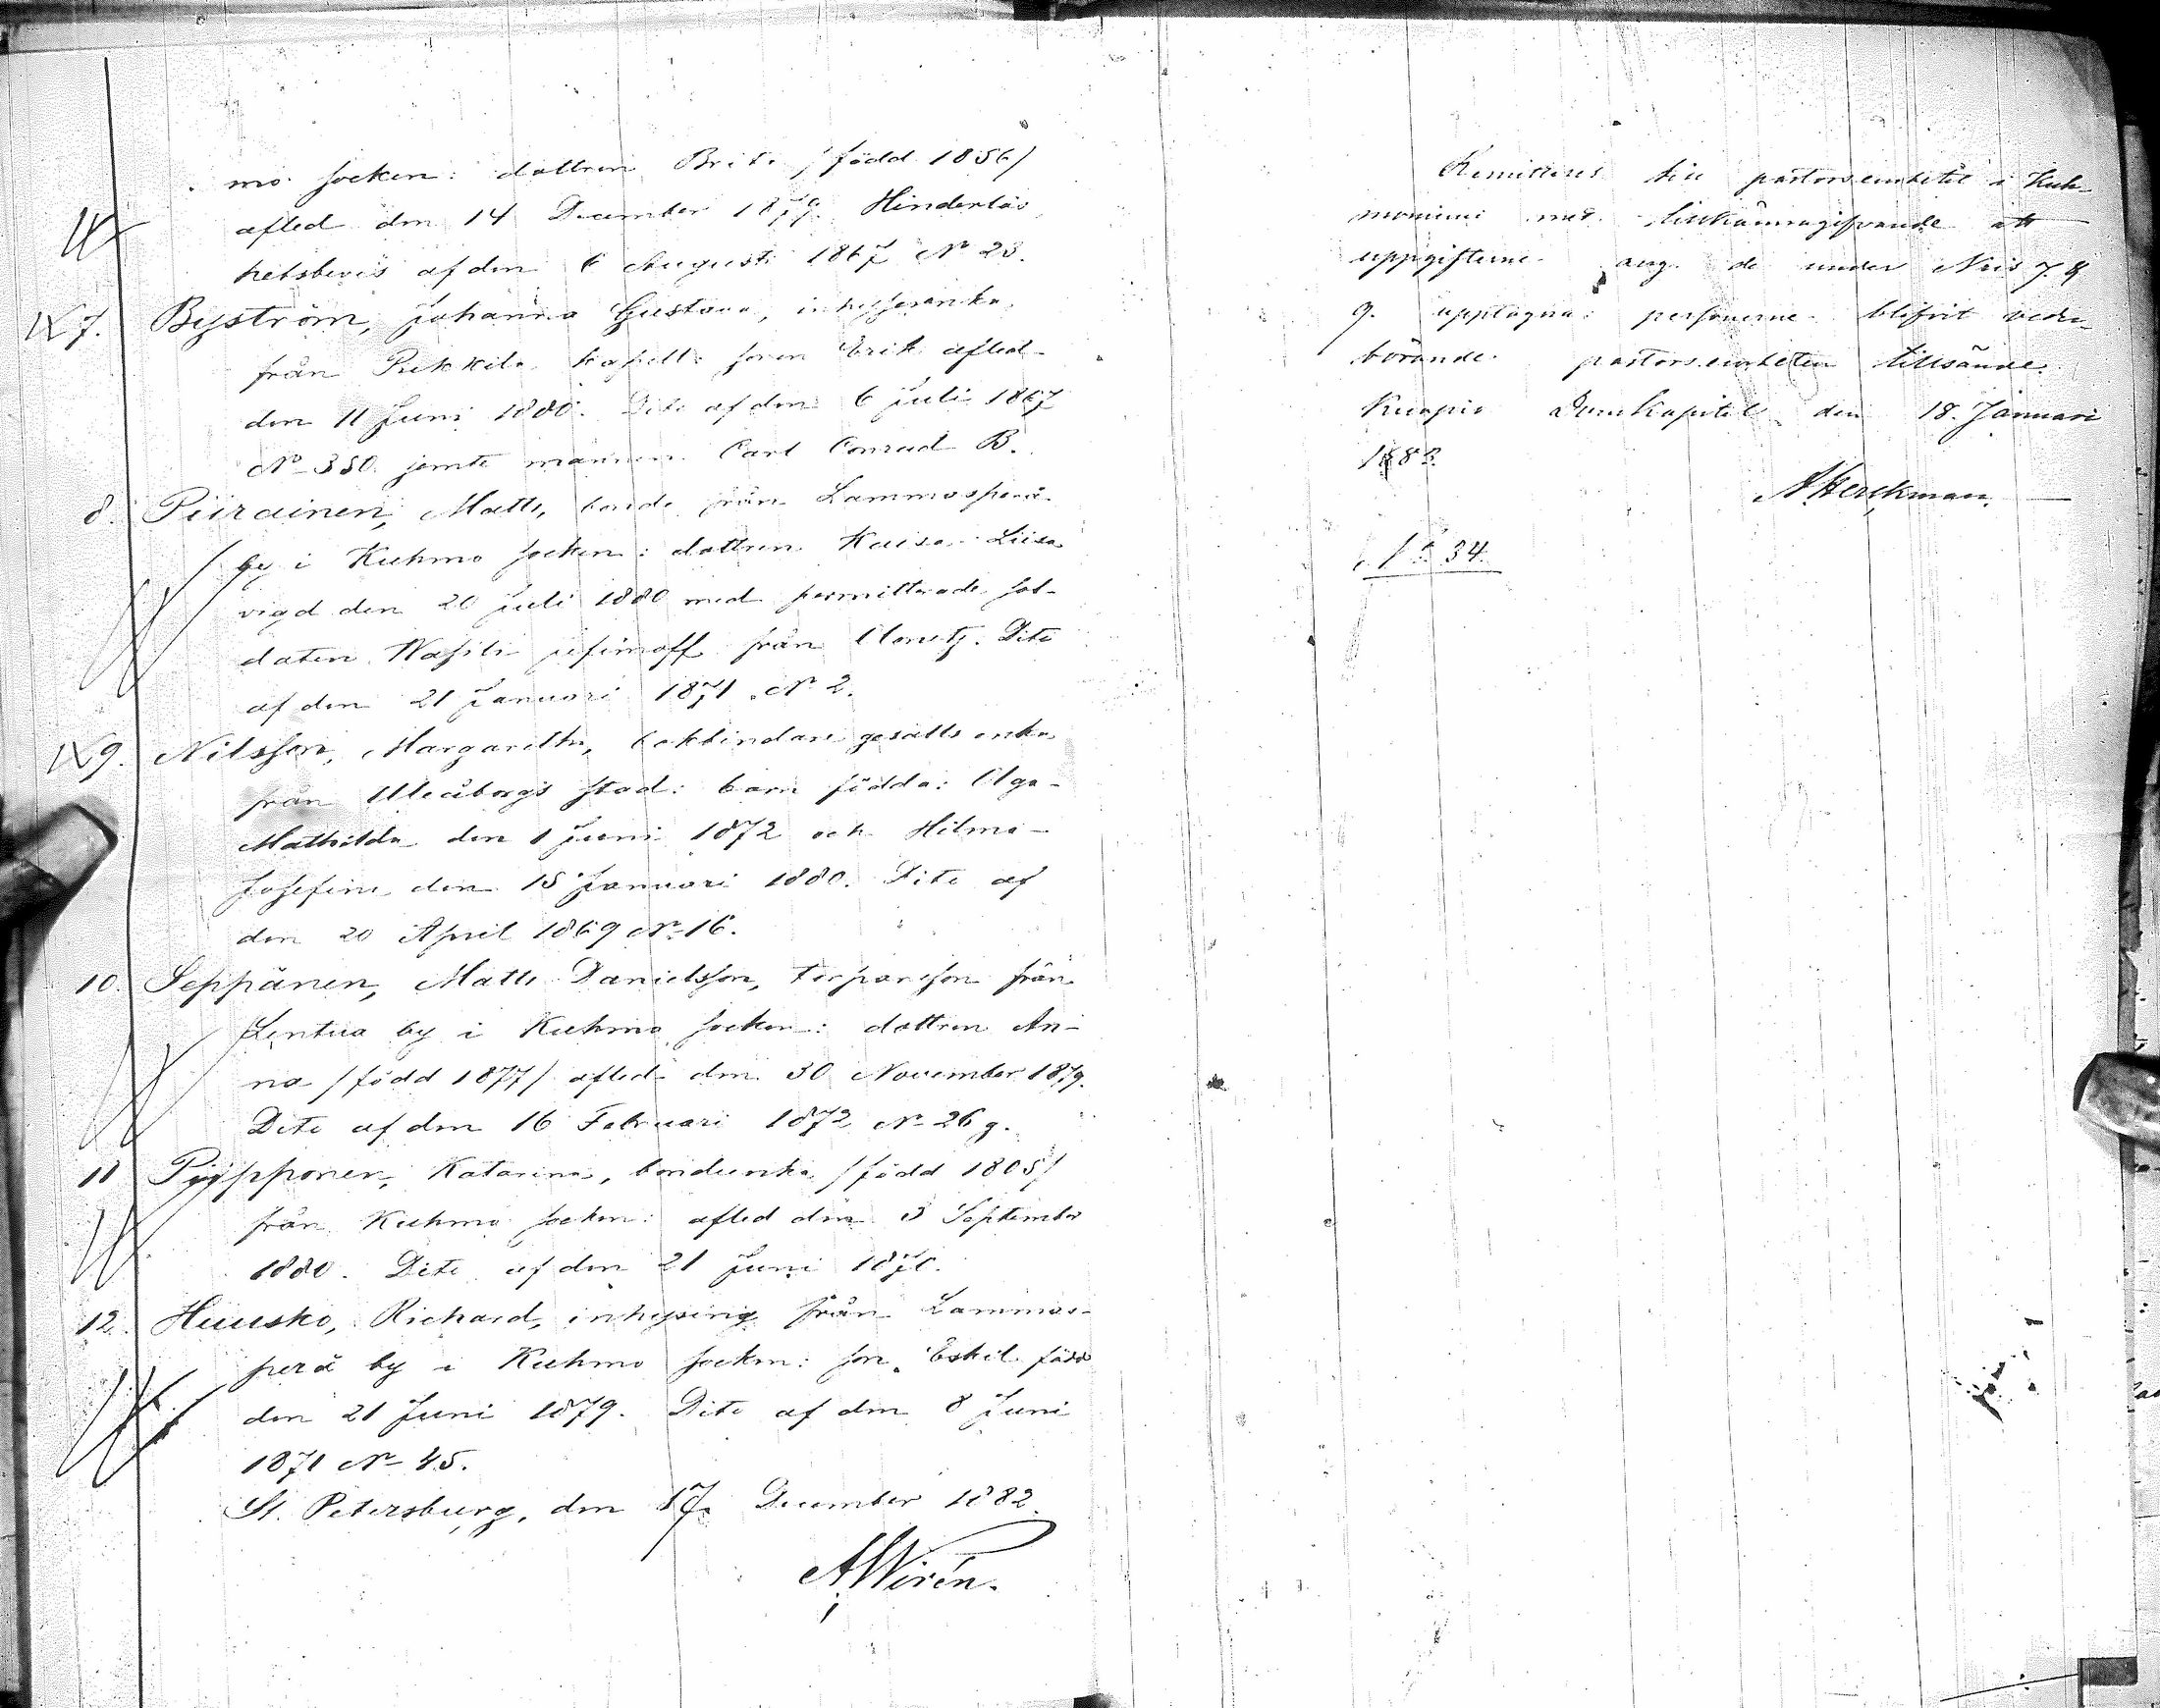 mo socken: dottren Brita /född 1856/
afled den 14 December 1879. Hinderlös
hetsbevis af den 6 Augusti 1867 Nº 23.
7. Byström, Johanna Gustava, inhysesenka
från Pukkila kapell: sonen Erik afled
den 11 Juni 1880. Dito af den 6 Juli 1867
Nº 350. jemte mannen Carl Conrad B.
8. Piirainen, Matts, bonde från Lammasperä
by i Kuhmo socken: dottren Kaisa Liisa
vigd den 20 Juli 1880 med permitterade sol-
daten Wasili Jefimoff från Olonetz. Dito
af den 21 Januari 1871 Nº 2.
9. Nilsson, Margaretha, bokbindare gesälls enka
från Uleåborgs stad: barn födda: Olga
Mathilda den 1 Juni 1872 och Hilma
Josefina den 15 Januari 1880. Dito af
den 20 April 1869 Nº 16.
10. Seppänen, Matts Danielsson, torpareson från
Lentua by i Kuhmo socken: dottren An-
na /född 1877/ afled den 30 November 1879.
Dito af den 16 Februari 1872 Nº 26 g.
11 Pyypponen, Katarina, bondeenka /född 1805/
från Kuhmo socken: afled den 3 September
1880. Dito af den 21 Juni 1870.
12. Huusko, Richard, inhysing från Lammas-
perä by i Kuhmo socken: son Eskil född
den 21 Juni 1879. Dito af den 8 Juni
1871 Nº 45.
St. Petersburg, den 17. December 1882.
A Wirén.
Remitteres till pastorsembetet i Kuh-
moniemi med tillkännagifvande att
uppgifterne ang. de under Nris 7. &
9. upptagna personerne blifvit veder-
börande pastorsembeten tillsände.
Kuopio Domkapitel den 18. Januari
1883.
A Herckman.
34.